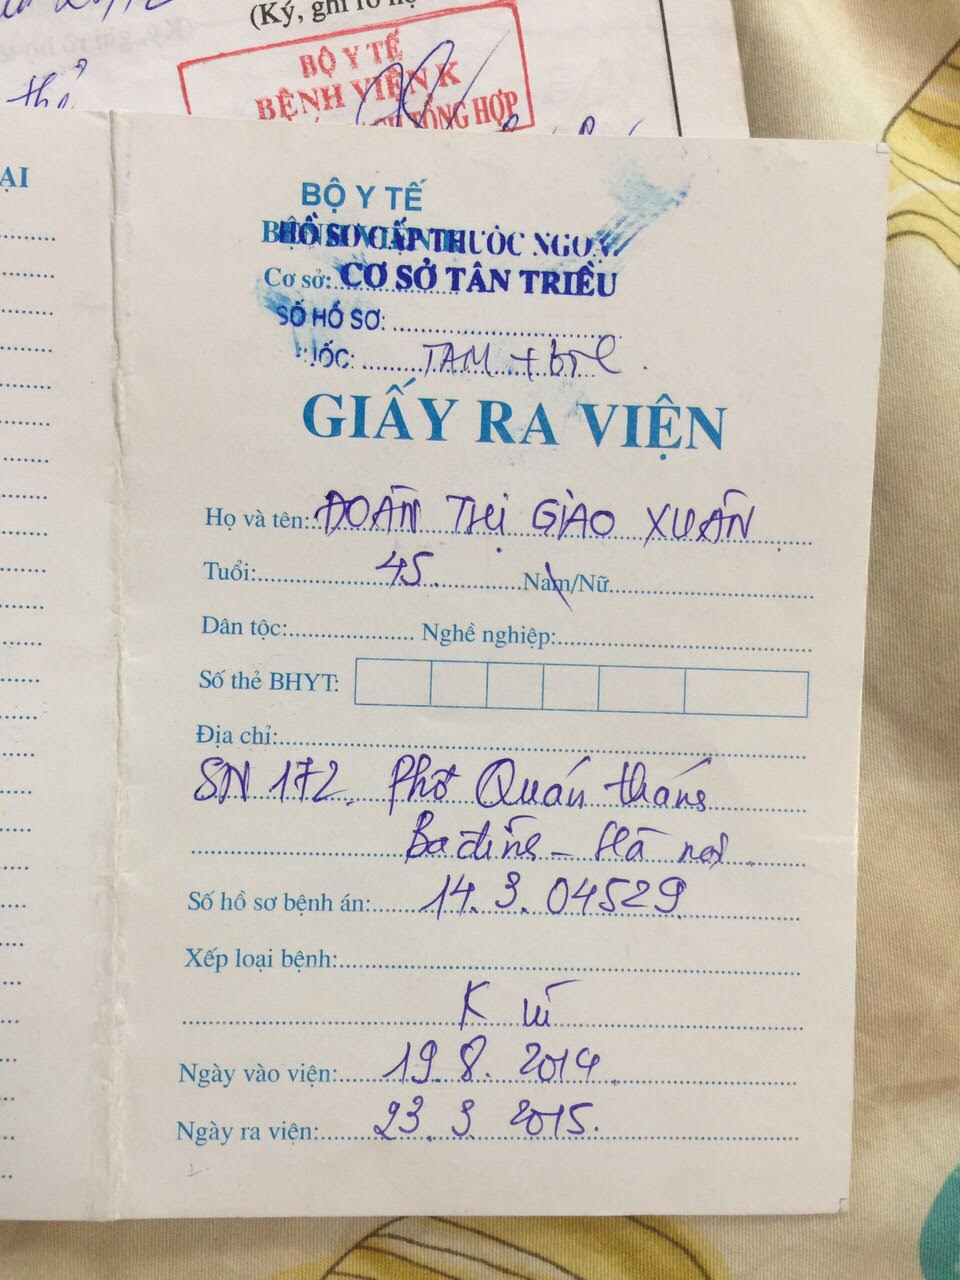 (Ký, ghi rõ họ
BỘ Y TẾ
BỆNH VIỆN K
TỔNG HỢP
ẠI
BỘ Y TẾ
HỒ SƠ CẤP THUỐC NGOẠI
Cơ sở: CƠ SỞ TÂN TRIỀU
SỐ HỒ SƠ:
TAM +
GIẤY RA VIỆN
Họ và tên: ĐOÀN THỊ GIÀO XUÂN
Tuổi: 45 Nam/Nữ
Dân tộc: Nghề nghiệp:
Số thẻ BHYT:
Địa chỉ:
SN 172. Phố Quán thánh
Ba đình - Hà nội
Số hồ sơ bệnh án: 14.3.04529
Xếp loại bệnh:
K vú
Ngày vào viện: 19.8.2014
Ngày ra viện: 23.3.2015.